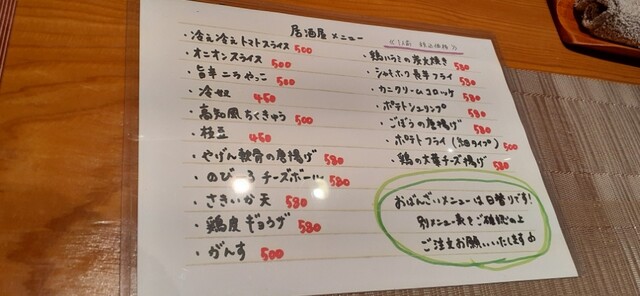 居酒屋メニュー
税込価格
・冷え冷えトマトスライス 500
・オニオンスライス 500
・旨辛こうやっこ 500
・冷奴 450
・高知風ちくきゅう 500
・枝豆 450
・やげん軟骨の唐揚げ 580
・のびーるチーズボール 580
・さきいか天 580
・鶏皮ギョウザ 580
・がんす 500
・鶏ハラミの炭火焼き 580
・シャトホワ長芋フライ 580
・カニクリームコロッケ 580
・ポテトシュリンプ 580
・ごぼうの唐揚げ 580
・ポテトフライ(タイプ) 500
・鶏の大葉チーズ揚げ 580
おばんざいメニューは日替りです!
別メニュー表をご確認の上
ご注文お願いいたします